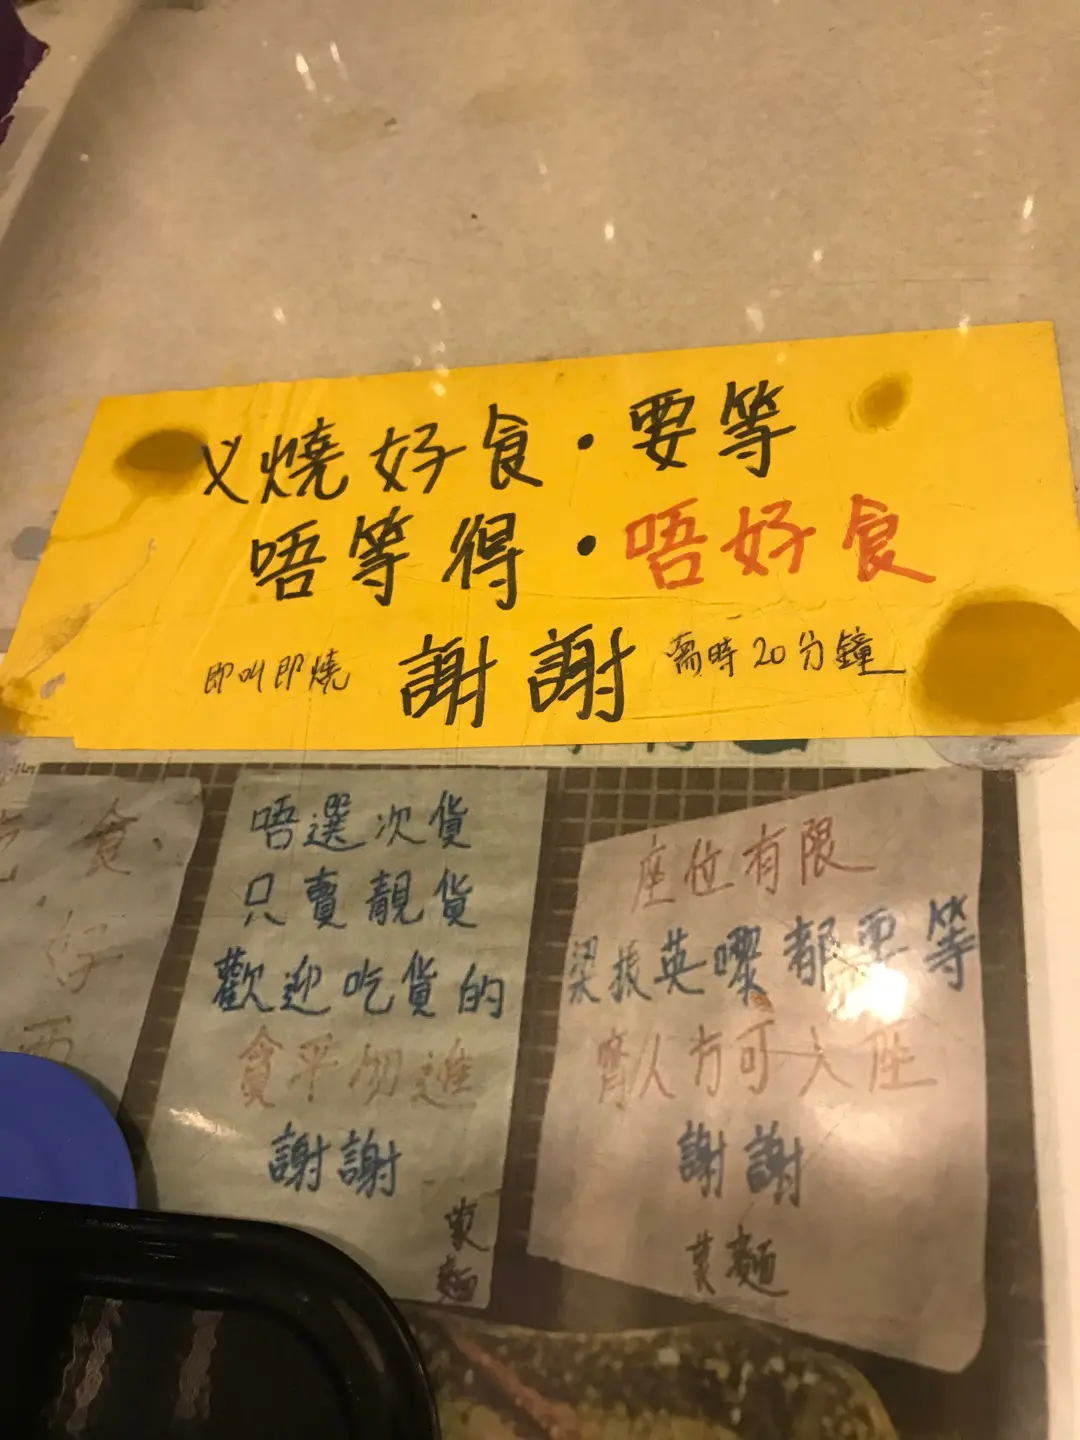 乂燒好食·要等
唔等得·唔好食
即叫即燒 謝謝 需時20分鐘
食、
好
唔選次貨
只賣靚貨
歡迎吃貨的
貪平勿進
謝謝
座位有限
梁振英嚟都要等
齊人方可入座
謝謝